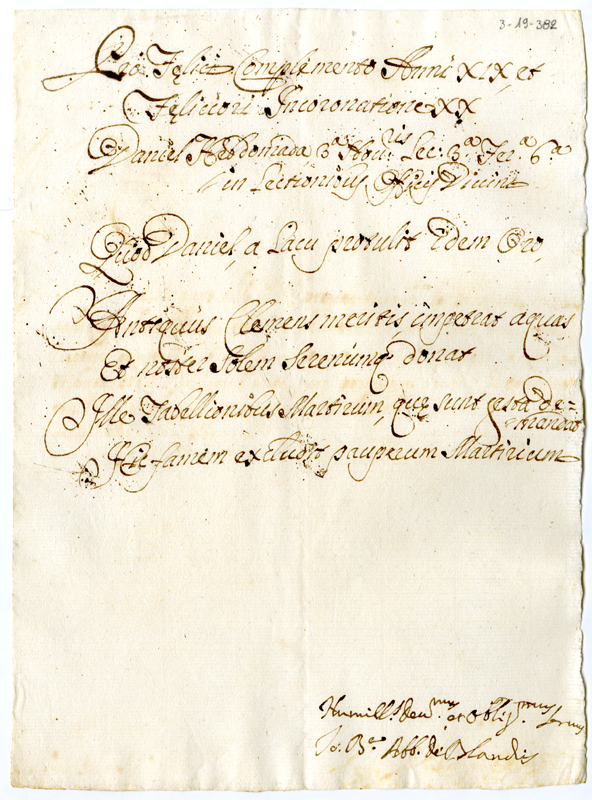 3-19-382
Pro Felici Complemento Anni XIX, et
Feliciori Incoronatione XX
Daniel Hebdomada 3ª Nou.ris Lec: 3ª Fer.ª 6.ª
in Lectionibus Offıcij Divini
Quod Daniel, a Lacu protulit idem Oro,
Antiquus Clemens meritis impetrat aquas
Et noster Solem Serenumq donat
Ille Tabellionibus Martirum, quę sunt gesta de=
mandat
Hic famem excludit pauperum Martirium
Humill.s deu.mus et oblig.mus seruus
Io. B.a Abb. de Blandis